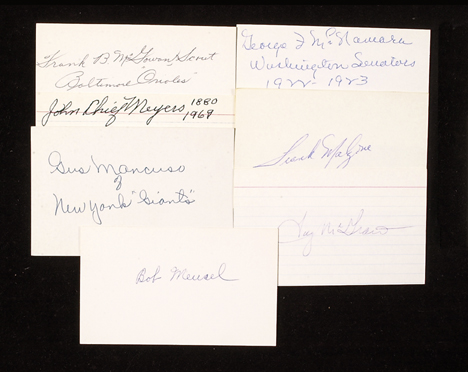 Frank B McGowan Scout
Baltimore "Orioles"
John Chief Meyers 1880
1968
Gus Mancuso
of
New York "Giants"
Bob Meusel
George F McNamara
Washington Senators
1922 - 1923
Frank
McGraw